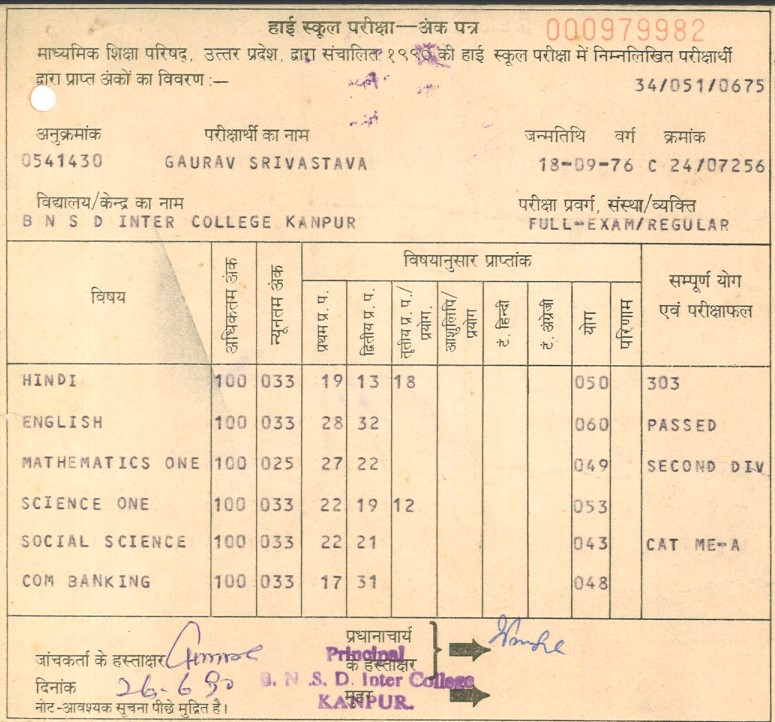 हाई स्कूल परीक्षा—अंक पत्र 000979982
माध्यमिक शिक्षा परिषद्, उत्तर प्रदेश, द्वारा संचालित १९९० की हाई स्कूल परीक्षा में निम्नलिखित परीक्षार्थी
द्वारा प्राप्त अंकों का विवरण :—
34/051/0675
अनुक्रमांक परीक्षार्थी का नाम जन्मतिथि वर्ग क्रमांक
0541430 GAURAV SRIVASTAVA 18-09-76 C 24/07256
विद्यालय/केन्द्र का नाम परीक्षा प्रवर्ग, संस्था/व्यक्ति
B N S D INTER COLLEGE KANPUR FULL-EXAM/REGULAR
विषय अधिकतम अंक न्यूनतम अंक विषयानुसार प्राप्तांक सम्पूर्ण योग एवं परीक्षाफल
प्रथम प्र. प. द्वितीय प्र. प. तृतीय प्र. प./प्रयोग. आशुलिपि/प्रयोग टं. हिन्दी टं. अंग्रेजी योग परिणाम
HINDI 100 033 19 13 18 050 303
ENGLISH 100 033 28 32 060 PASSED
MATHEMATICS ONE 100 025 27 22 049 SECOND DIV
SCIENCE ONE 100 033 22 19 12 053
SOCIAL SCIENCE 100 033 22 21 043 CAT ME-A
COM BANKING 100 033 17 31 048
प्रधानाचार्य
जांचकर्ता के हस्ताक्षर के हस्ताक्षर
Principal
दिनांक 26-6-90 मुहर
B. N. S. D. Inter College
KANPUR.
नोट-आवश्यक सूचना पीछे मुद्रित है।